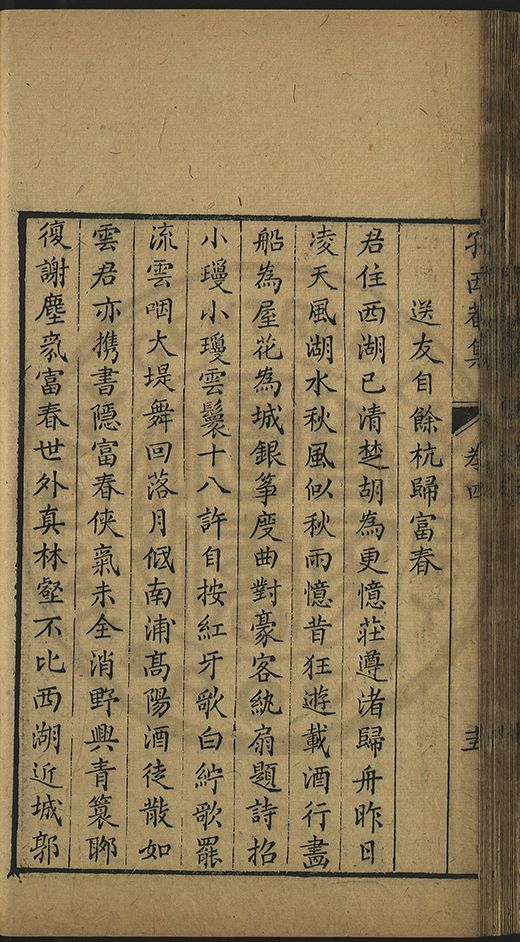 西菴集 卷四
送友自餘杭歸富春
君住西湖已清楚胡為更憶莊遵渚歸舟昨日
凌天風湖水秋風似秋雨憶昔狂遊載酒行畫
船為屋花為城銀箏度曲對豪客紈扇題詩招
小瓊小瓊雲鬟十八許自按紅牙歌白紵歌罷
流雲咽大堤舞回落月低南浦髙陽酒徒散如
雲君亦携書隱富春俠氣未全消野興青簑聊
復謝塵氛富春世外真林壑不比西湖近城郭